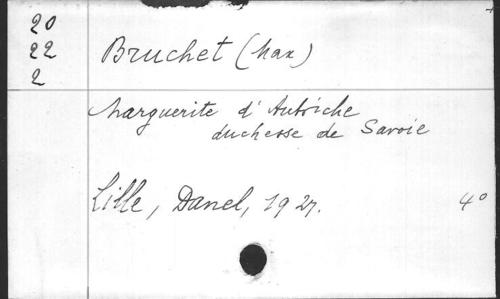 20
22
2
Bruchet (Max)
Marguerite d'Autriche
duchesse de Savoie
Lille, Danel, 1927.
4°